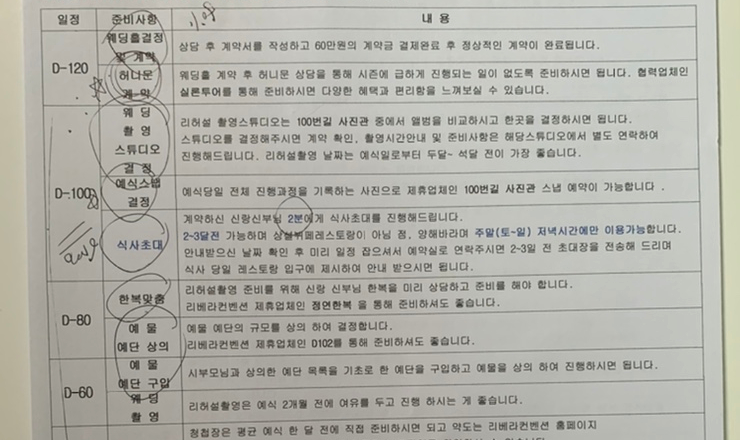 일정 준비사항 내 용
D-120
웨딩홀결정
및 계약
상담 후 계약서를 작성하고 60만원의 계약금 결제완료 후 정상적인 계약이 완료됩니다.
허니문
계 약
웨딩홀 계약 후 허니문 상담을 통해 시즌에 급하게 진행되는 일이 없도록 준비하시면 됩니다. 협력업체인
실론투어를 통해 준비하시면 다양한 혜택과 편리함을 느껴보실 수 있습니다.
D-100
웨 딩
촬 영
스튜디오
결 정
리허설 촬영스튜디오는 100번길 사진관 중에서 앨범을 비교하시고 한곳을 결정하시면 됩니다.
스튜디오를 결정해주시면 계약 확인, 촬영시간안내 및 준비사항은 해당스튜디오에서 별도 연락하여
진행해드립니다. 리허설촬영 날짜는 예식일로부터 두달~ 석달 전이 가장 좋습니다.
예식스냅
결정
예식당일 전체 진행과정을 기록하는 사진으로 제휴업체인 100번길 사진관 스냅 예약이 가능합니다 .
식사초대
계약하신 신랑신부님 2분에게 식사초대를 진행해드립니다.
2~3달전 가능하며 상설뷔페레스토랑이 아님 점, 양해바라며 주말(토~일) 저녁시간에만 이용가능합니다.
안내받으신 날짜 확인 후 미리 일정 잡으셔서 예약실로 연락주시면 2-3일 전 초대장을 전송해 드리며
식사 당일 레스토랑 입구에 제시하여 안내 받으시면 됩니다.
D-80
한복맞춤
리허설촬영 준비를 위해 신랑 신부님 한복을 미리 상담하고 준비를 해야 합니다.
리베라컨벤션 제휴업체인 정연한복 을 통해 준비하셔도 좋습니다.
예 물
예단 상의
예물 예단의 규모를 상의 하여 결정합니다.
리베라컨벤션 제휴업체인 D102를 통해 준비하셔도 좋습니다.
D-60
예 물
예단 구입
시부모님과 상의한 예단 목록을 기초로 한 예단을 구입하고 예물을 상의 하여 진행하시면 됩니다.
웨 딩
촬 영
리허설촬영은 예식 2개월 전에 여유를 두고 진행 하시는 게 좋습니다.
청첩장은 평균 예식 한 달 전에 직접 준비하시면 되고 약도는 리베라컨벤션 홈페이지